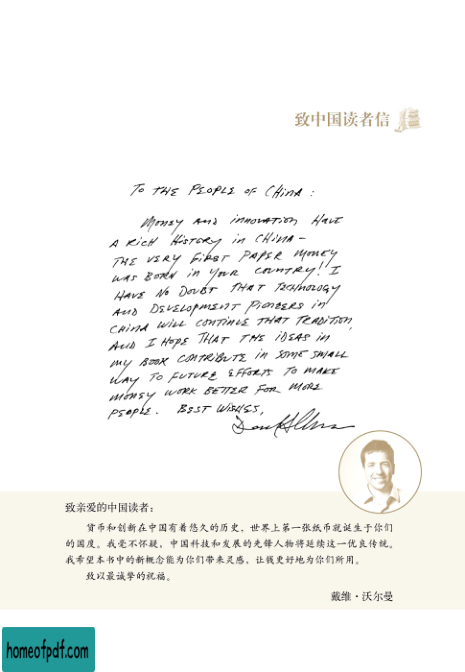 致中国读者信
TO THE PEOPLE OF CHINA :
MONEY AND INNOVATION HAVE
A RICH HISTORY IN CHINA –
THE VERY FIRST PAPER MONEY
WAS BORN IN YOUR COUNTRY! I
HAVE NO DOUBT THAT TECHNOLOGY
AND DEVELOPMENT PIONEERS IN
CHINA WILL CONTINUE THAT TRADITION,
AND I HOPE THAT THE IDEAS IN
MY BOOK CONTRIBUTE IN SOME SMALL
WAY TO FUTURE EFFORTS TO MAKE
MONEY WORK BETTER FOR MORE
PEOPLE. BEST WISHES,
致亲爱的中国读者：
货币和创新在中国有着悠久的历史，世界上第一张纸币就诞生于你们
的国度。我毫不怀疑，中国科技和发展的先锋人物将延续这一优良传统。
我希望本书中的新概念能为你们带来灵感，让钱更好地为你们所用。
致以最诚挚的祝福。
戴维·沃尔曼
homeofpdf.com